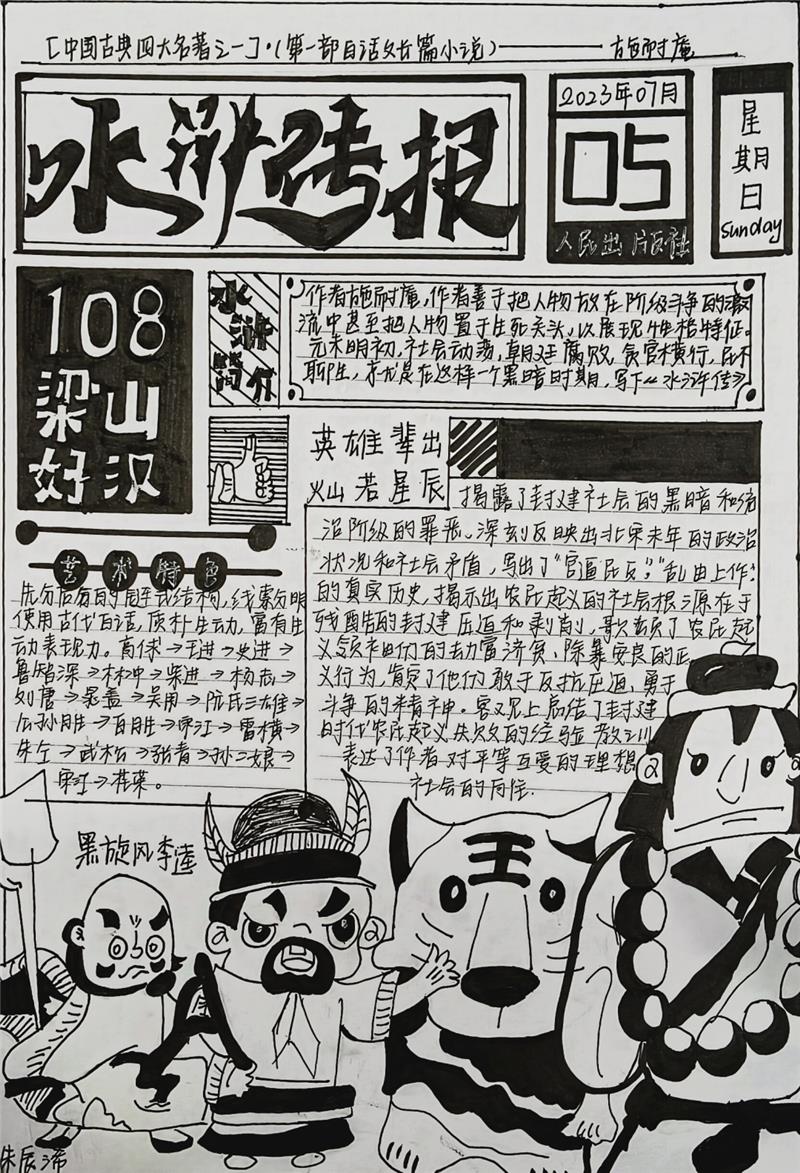 [中国古典四大名著之一]·(第一部白话文长篇小说)——施耐庵
水浒传报
2023年07月
05
人民出版社
星期日
Sunday
108
梁山
好汉
水浒简介
作者施耐庵,作者善于把人物放在阶级斗争的激
流中甚至把人物置于生死关头,以展现性格特征。
元末明初,社会动荡,朝廷腐败,贪官横行,民不
聊生,尤是在这样一个黑暗时期,写下《水浒传》
英雄辈出
灿若星辰
揭露了封建社会的黑暗和统
治阶级的罪恶。深刻反映出北宋末年的政治
状况和社会矛盾,写出了“官逼民反”,“乱由上作”
的真实历史,揭示出农民起义的社会根源在于
残酷的封建压迫和剥削,歌颂了农民起
义领袖们的劫富济贫、除暴安良的正
义行为,肯定了他们敢于反抗压迫,勇于
斗争的精神。客观上总结了封建
时代农民起义失败的经验教训
表达了作者对平等互爱的理想
社会的向往.
艺术特色
先分后合的链式结构,线索分明
使用古代白话,质朴生动,富有生
动表现力。高俅→王进→史进→
鲁智深→林冲→柴进→杨志→
刘唐→晁盖→吴用→阮氏三雄→
公孙胜→白胜→宋江→雷横→
朱仝→武松→张青→孙二娘→
宋江→桂荣。
黑旋风李逵
王
朱辰浠